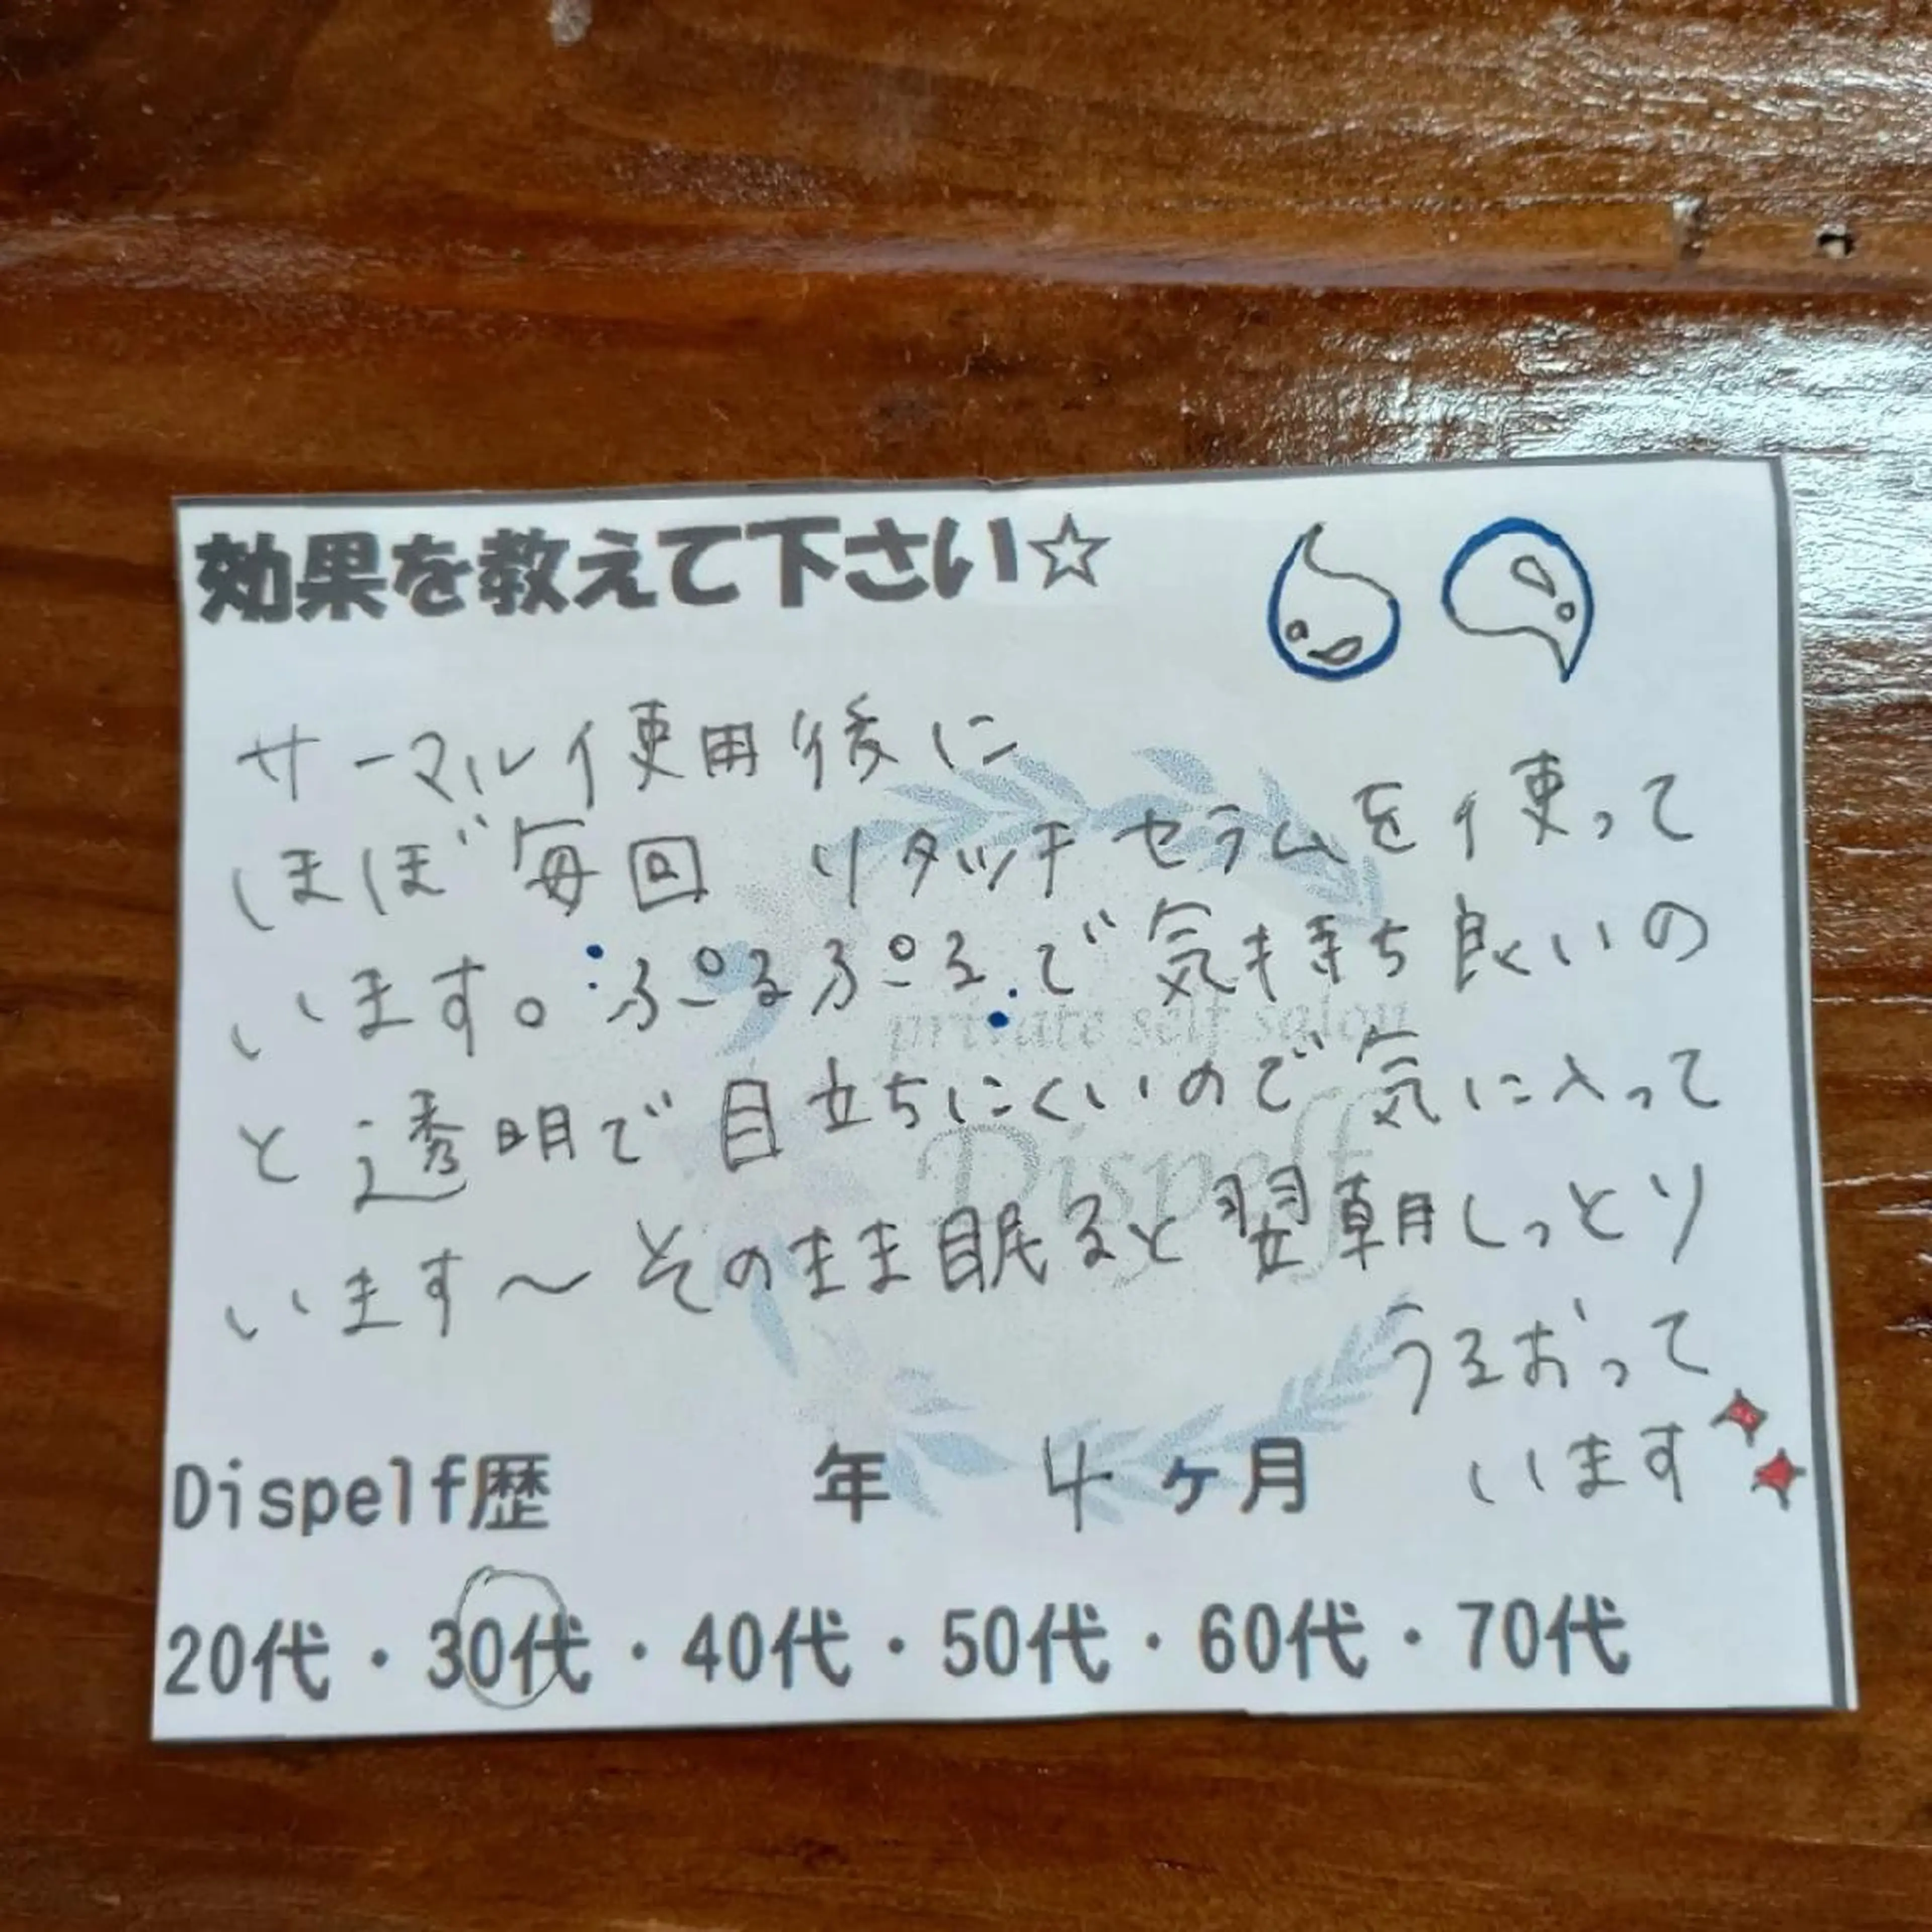 効果を教えて下さい☆
サーマル使用後に
ほぼ毎回 リタッチセラムを使って
います。ぷるぷるで気持ち良いの
と透明で目立ちにくいので気に入って
います〜そのまま眠ると翌朝しっとり
うるおって
います
private self salon
Dispelf
Dispelf歴 年 4ヶ月
20代・30代・40代・50代・60代・70代